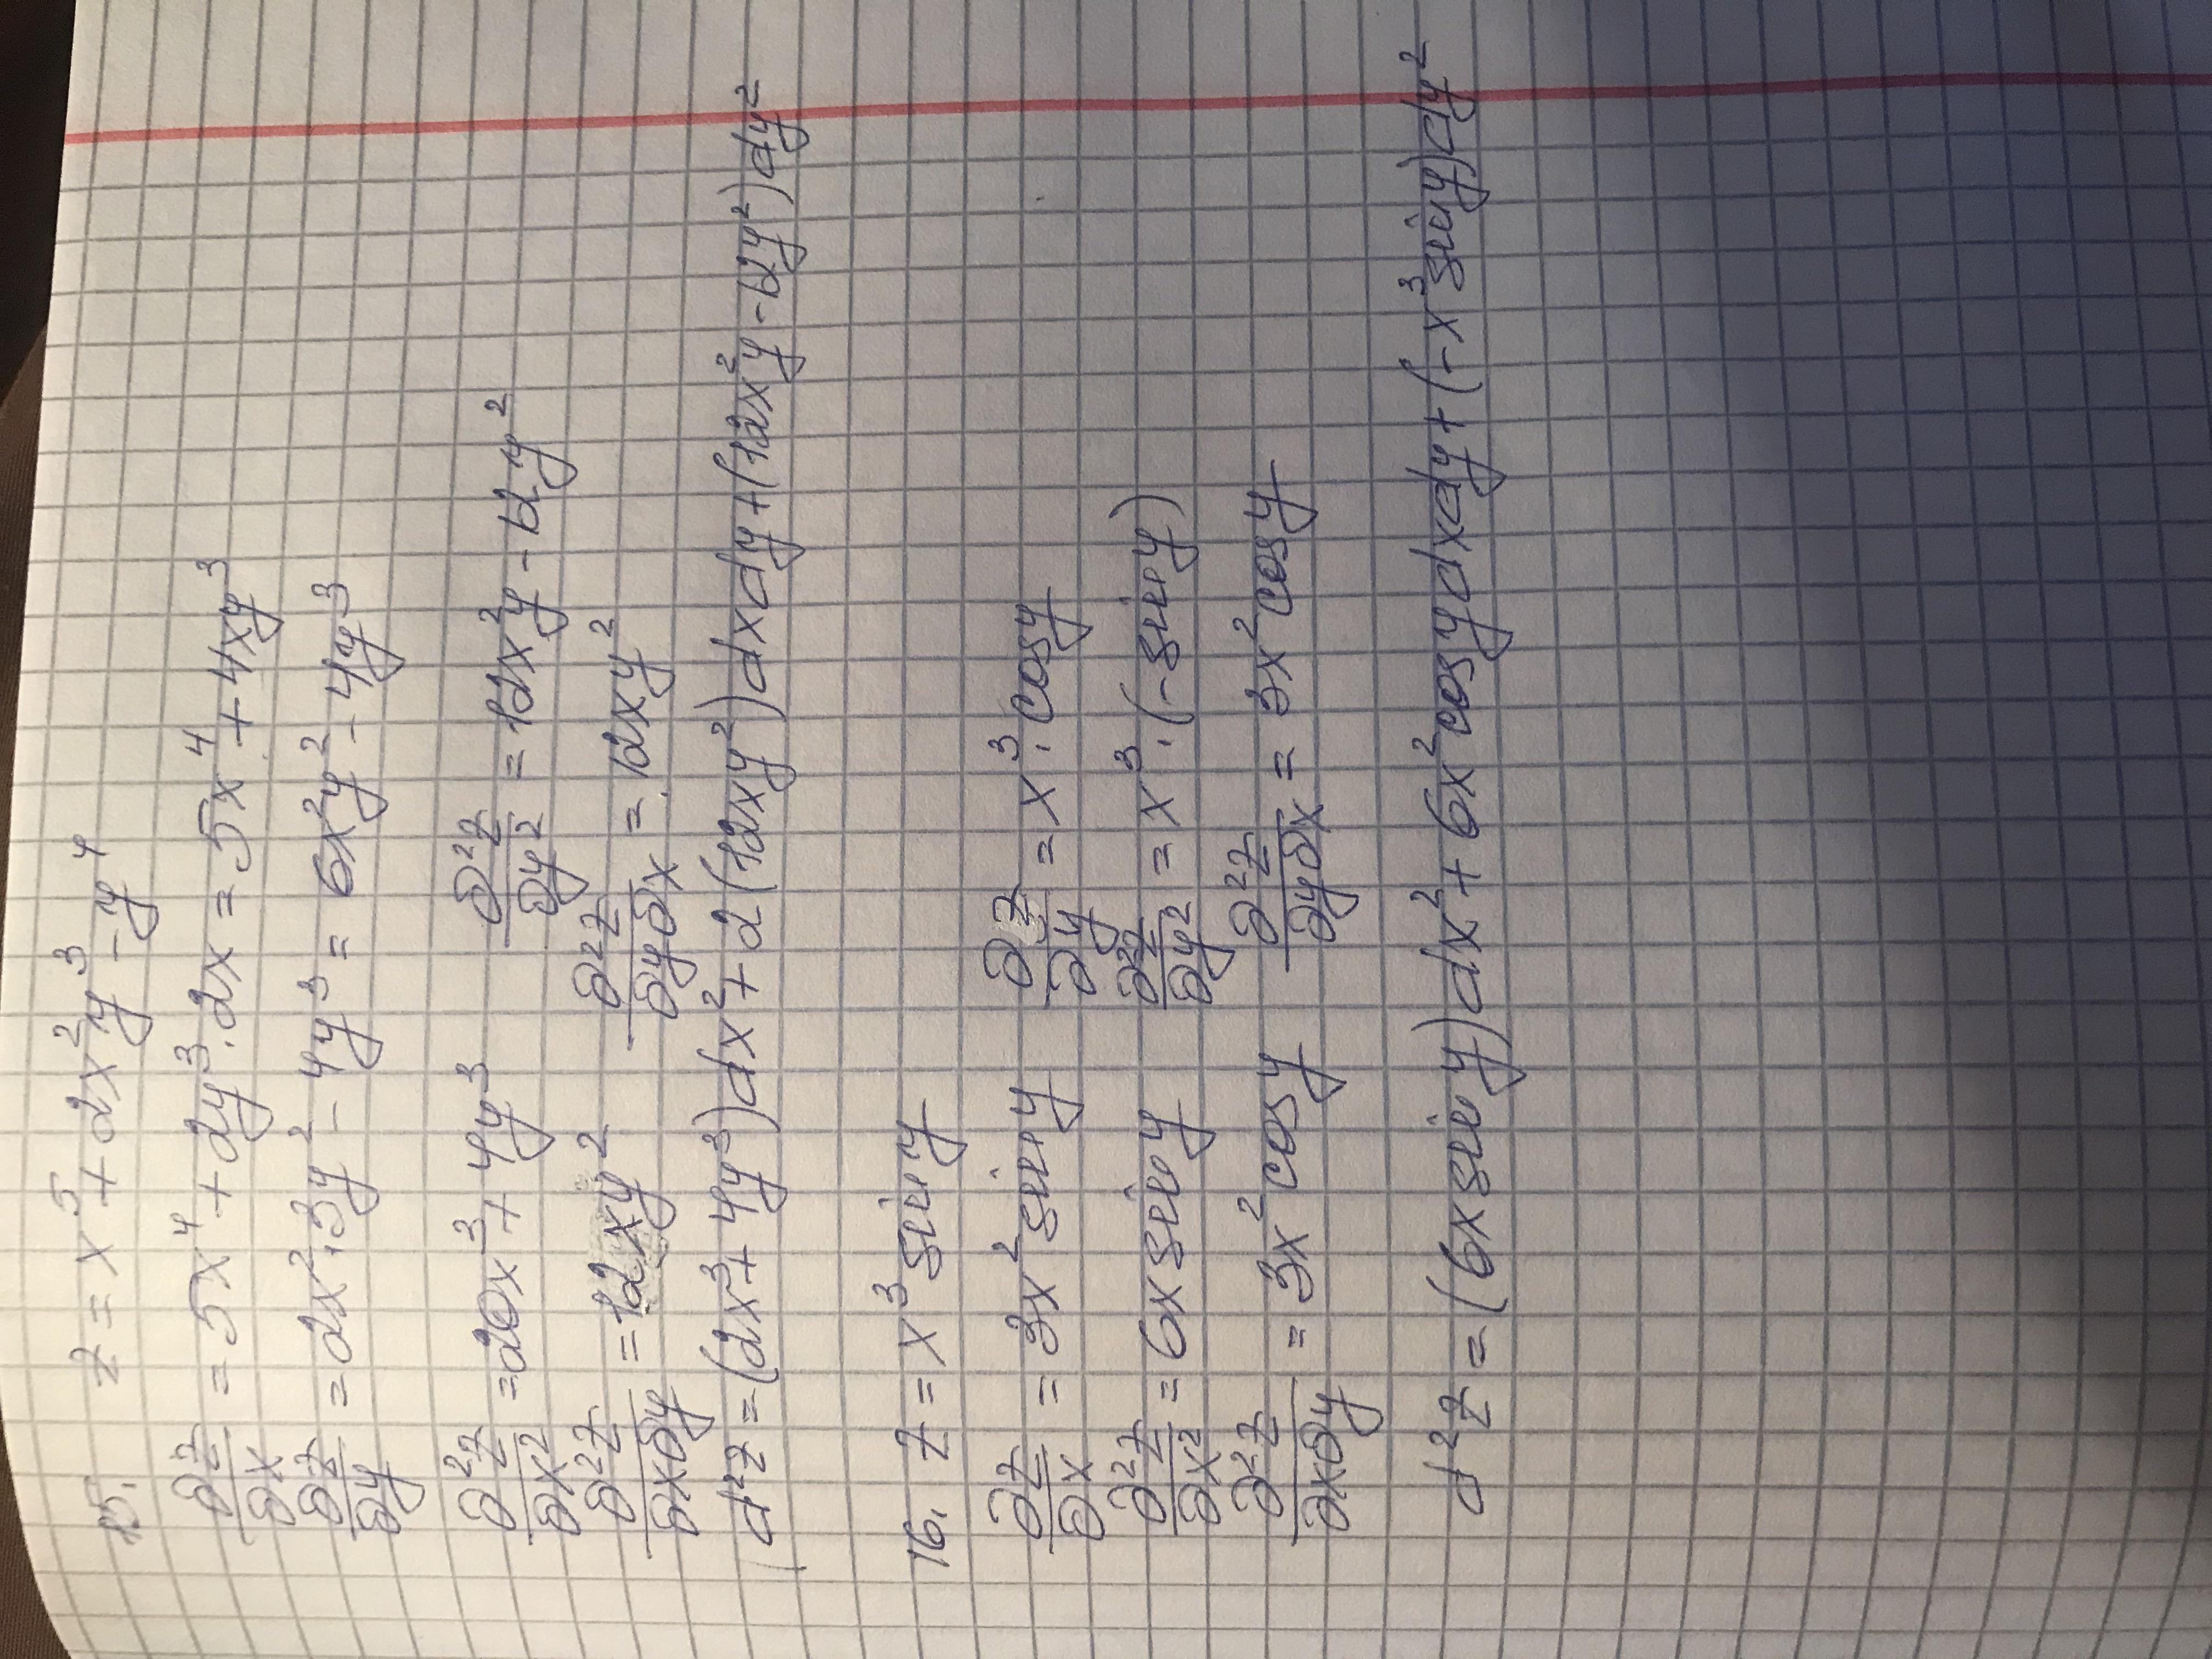 15. z = x⁵ + 2x²y³ - y⁴
∂z/∂x = 5x⁴ + 2y³·2x = 5x⁴ + 4xy³
∂z/∂y = 2x²·3y² - 4y³ = 6x²y² - 4y³
∂²z/∂x² = 20x³ + 4y³ ∂²z/∂y² = 12x²y - 12y²
∂²z/∂x∂y = 12xy² ∂²z/∂y∂x = 12xy²
d²z = (2x³ + 4y³)dx² + 2(12xy²)dxdy + (12x²y - 12y²)dy²
16. z = x³siny
∂z/∂x = 3x²siny ∂z/∂y = x³·cosy
∂²z/∂x² = 6xsiny ∂²z/∂y² = x³·(-siny)
∂²z/∂x∂y = 3x²cosy ∂²z/∂y∂x = 3x²cosy
d²z = (6xsiny)dx² + 6x²cosydxdy + (-x³siny)dy²